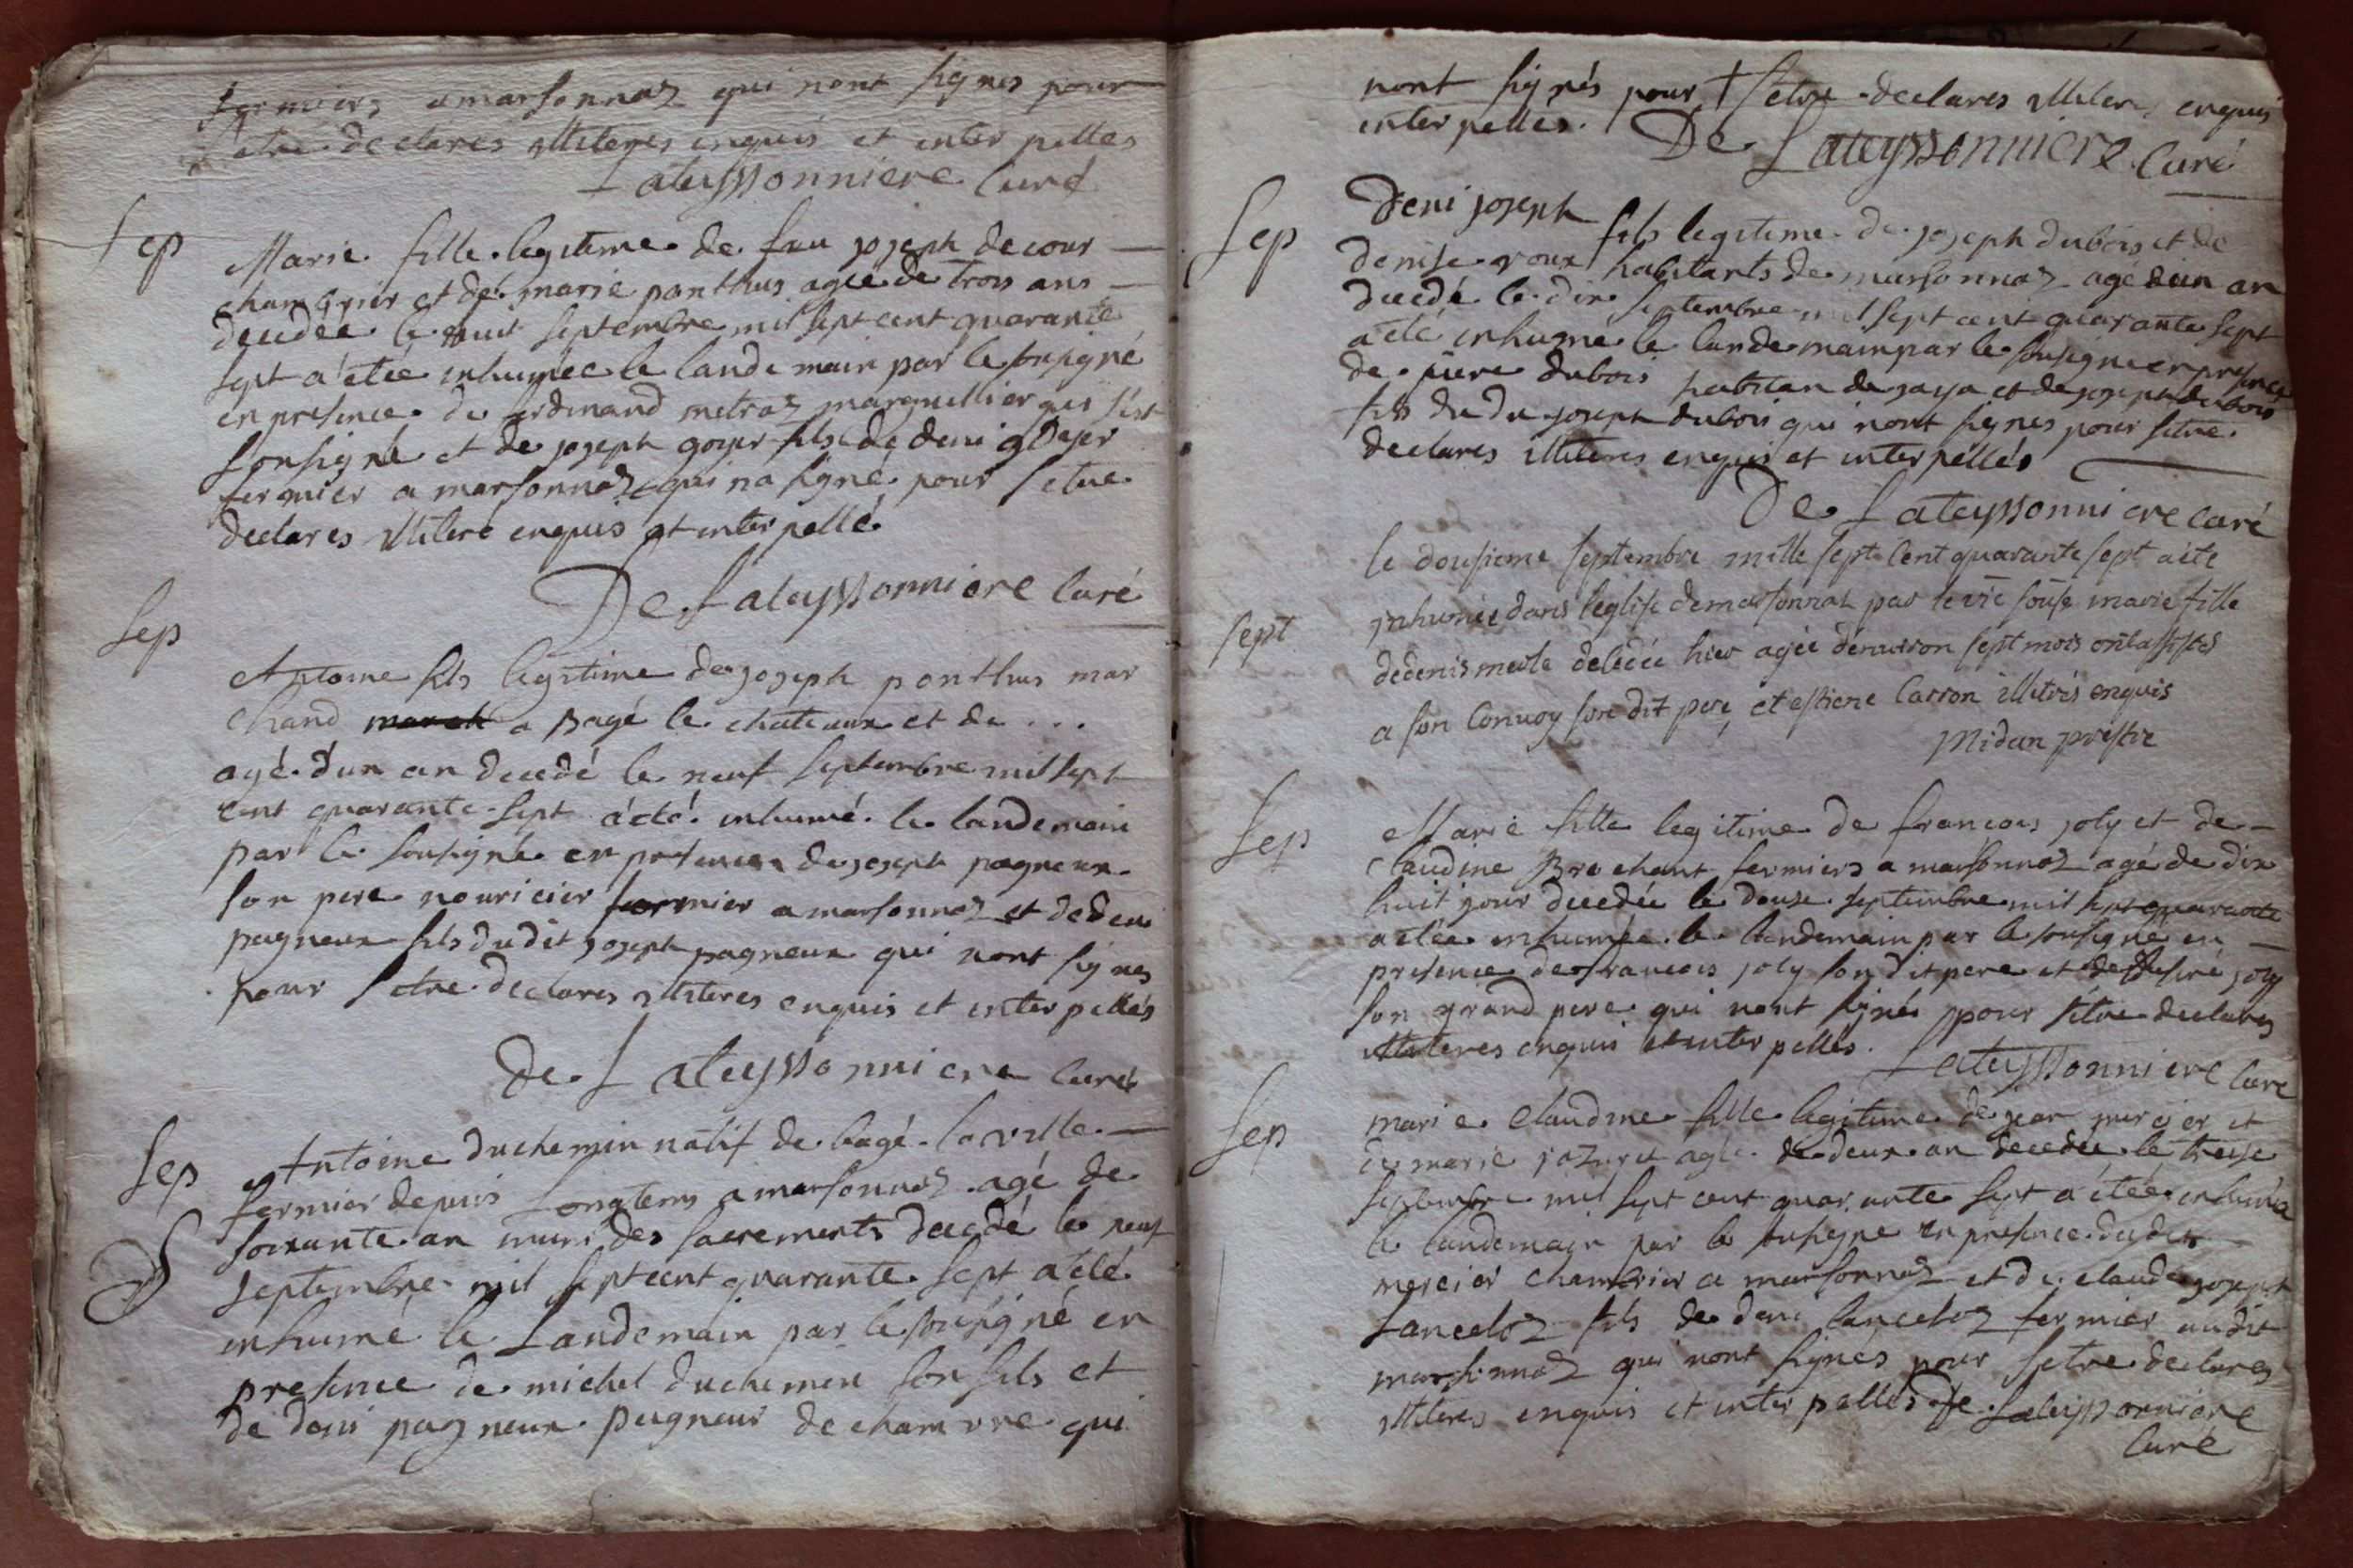 fermiers a marsonnaz qui nont signes pour
setre declares illiteres enquis et interpelles
Lateyssonniere Curé
Sep
Marie fille legitime de feu joseph decour
chambrier et de marie ponthus agée de trois ans
decedée le huit septembre mil sept cent quarante
sept a étée inhumée le landemain par le sousigné
en presence de ferdinand metraz marguillier qui sest
sousigné et de joseph goyer fils de deni goyer
fermier a marsonnaz qui na signé pour setre
declares illiteré enquis et interpellé
De Lateyssonniere Curé
Sep
Antoine fils legitime de joseph ponthus mar
chand a Bagé le chateaux et de ...
agé dun an decedé le neuf septembre mil sept
cent quarante sept a été inhumé le landemain
par le sousigné en presence de joseph pagneux
son pere nouricier fermier a marsonnaz et de deni
pagneux fils dudit joseph pagneux qui nont signes
pour setre declares illiteres enquis et interpellés
De Lateyssonniere Curé
Sep
Antoine duchemin natif de bagé la ville
fermier depuis longtems a marsonnaz agé de
soixante an muni des sacrements decedé le neuf
septembre mil sept cent quarante sept a été
inhumé le Landemain par le sousigné en
presence de michel duchemin son fils et
de deni pagneux pegneur de chanvre qui
nont signés pour setre declares illiteres enquis
interpellés.
De Lateyssonniere Curé
Sep
Deni joseph fils legitime de joseph dubois et de
denise roux habitants de marsonnaz agé dun an
decedé le dix septembre mil sept cent quarante sept
a été inhumé le landemain par le sousigné en presence
de piere dubois habitan de jaya et de joseph dubois
fils du du joseph dubois qui nont signes pour setre
declares illiteres enquis et interpéllés
De Lateyssonniere Curé
le dousieme septembre mille sept Cent quarante sept a été
Sept
inhumée dans leglise de marsonnaz par le vre sousé marie fille
de denis merle decedée hier agée denviron sept mois ont assistés
a son Convoy son dit pere, et estiene Carron illitrés enquis
Midan prestre
Sep
Marie fille legitime de francois joly et de
claudine Brochant fermiers a marsonnaz agé de dix
huit jour decedée le douse septembre mil sept quarante
a étée inhumée le landemain par le sousigné en
presence de francois joly son dit pere et de desiré joly
son grand pere qui nont signés pour sétre declares
illiteres enquis et interpellés.
Lateyssonniere Curé
Sep
marie Claudine fille legitime de jean mercier et
de marie agée de deux an decedée le treise
septembre mil sept cent quarante sept a étée inhumée
le landemain par le sousigne en presence dudit
mercier chambrier a marsonnaz et de claude joseph
Lanceloz fils de deni lanceloz fermier audit
marsonnaz qui nont signés pour setre declares
illiteres enquis et interpellés De Lateyssonniere
Curé